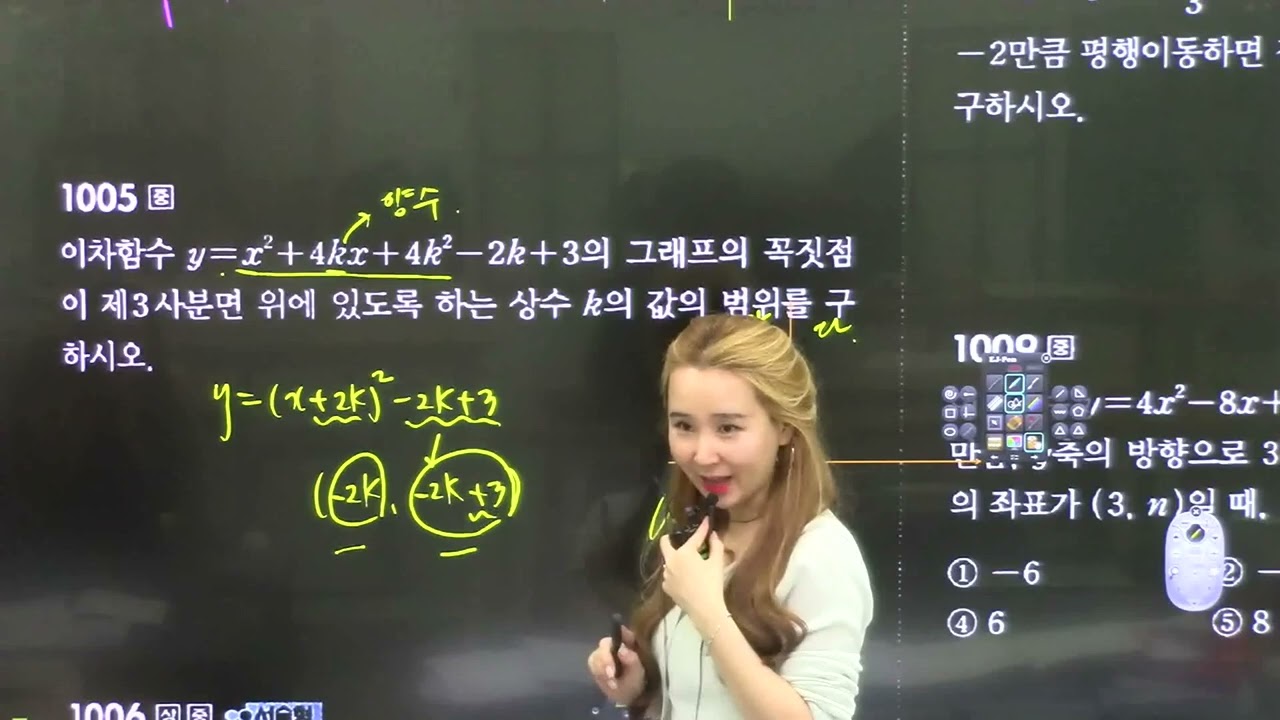 3
-2만큼 평행이동하면
구하시오.
1005 중
상수.
이차함수 y=x²+4kx+4k²-2k+3의 그래프의 꼭짓점
이 제3사분면 위에 있도록 하는 상수 k의 값의 범위를 구
하시오.
y=(x+2k)²-2k+3
(-2k, -2k+3)
1006 상중 서술형
1008 중
EJ-Pen
y=4x²-8x+
축의 방향으로 3
의 좌표가 (3, n)일 때,
① -6
② -
④ 6
⑤ 8